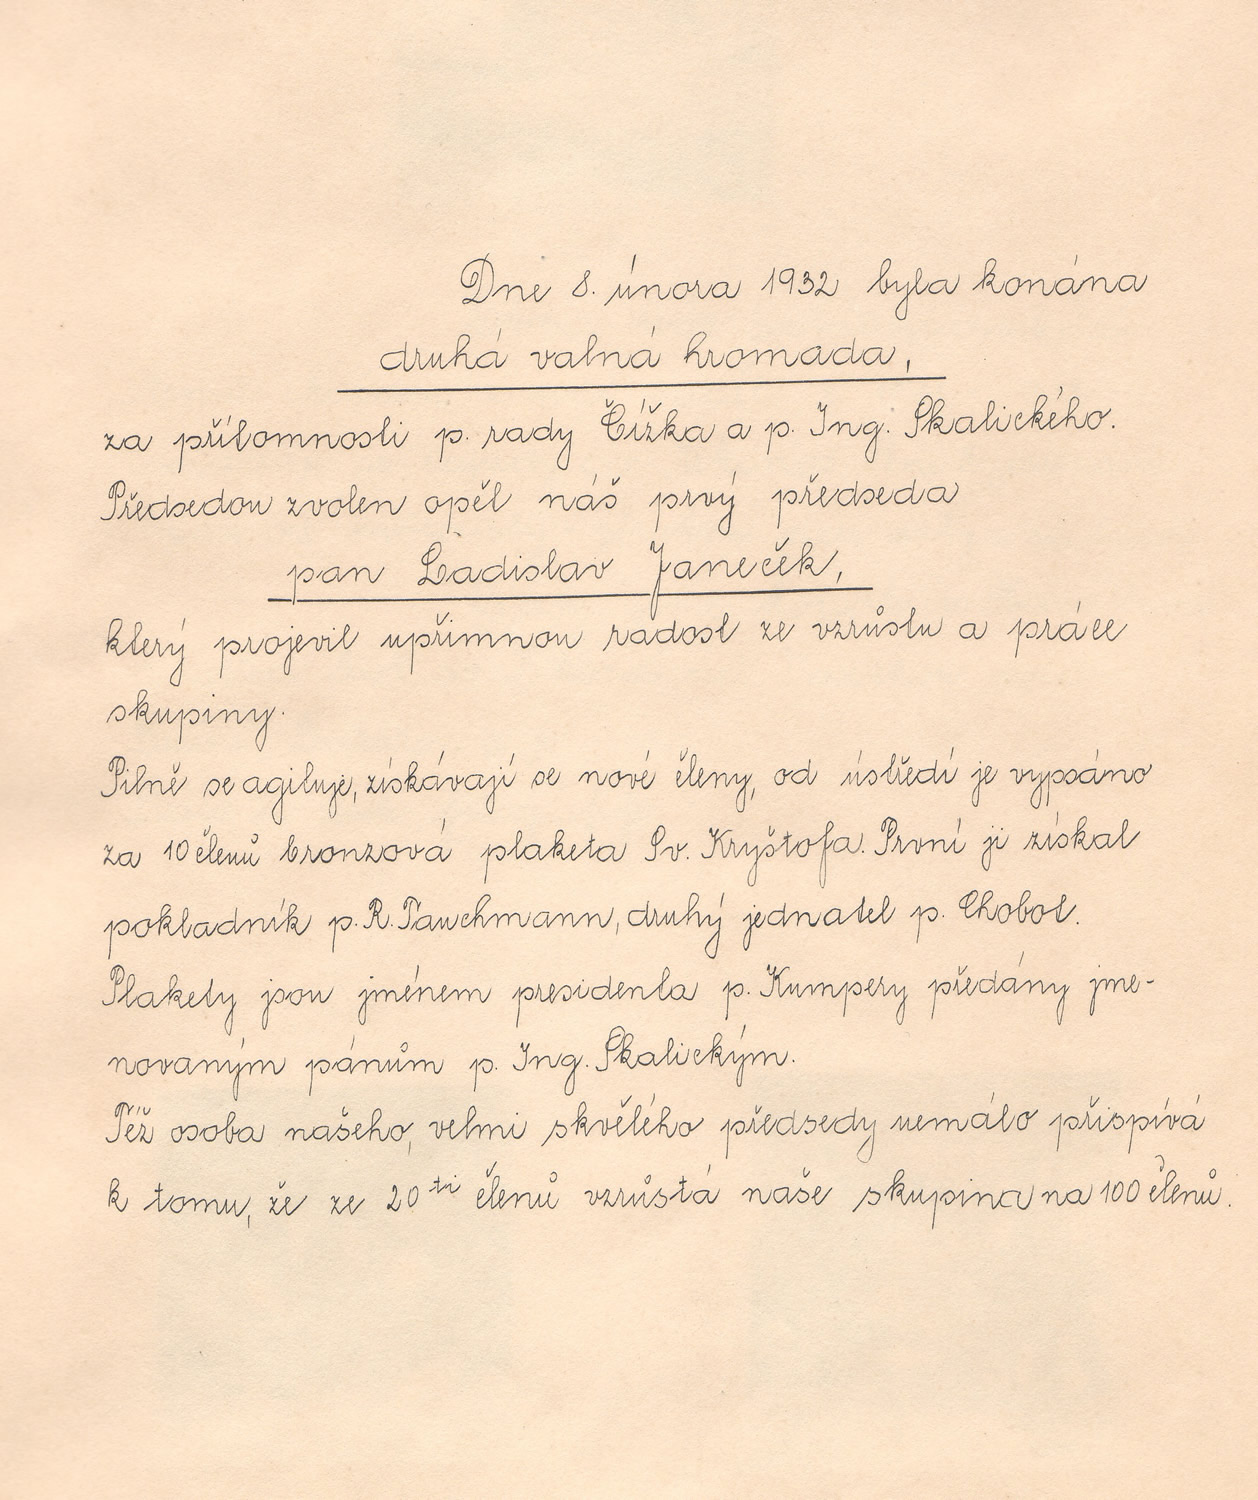 Dne 8. února 1932 byla konána
druhá valná hromada,
za přítomnosti p. rady Čížka a p. Ing. Skalického.
Předsedou zvolen opět náš prvý předseda
pan Ladislav Janeček,
který projevil upřimnou radost ze vzrůstu a práce
skupiny.
Pilně se agituje, získávají se nové členy, od ústředí je vypsáno
za 10 členů bronzová plaketa Sv. Kryštofa. První ji získal
pokladník p. R. Tauchmann, druhý jednatel p. Chobot.
Plakety jsou jménem presidenta p. Kumpery předány jme-
novaným pánům p. Ing. Skalickým.
Též osoba našeho, velmi skvělého předsedy nemálo přispívá
k tomu, že ze 20ti členů vzrůstá naše skupina na 100 členů.